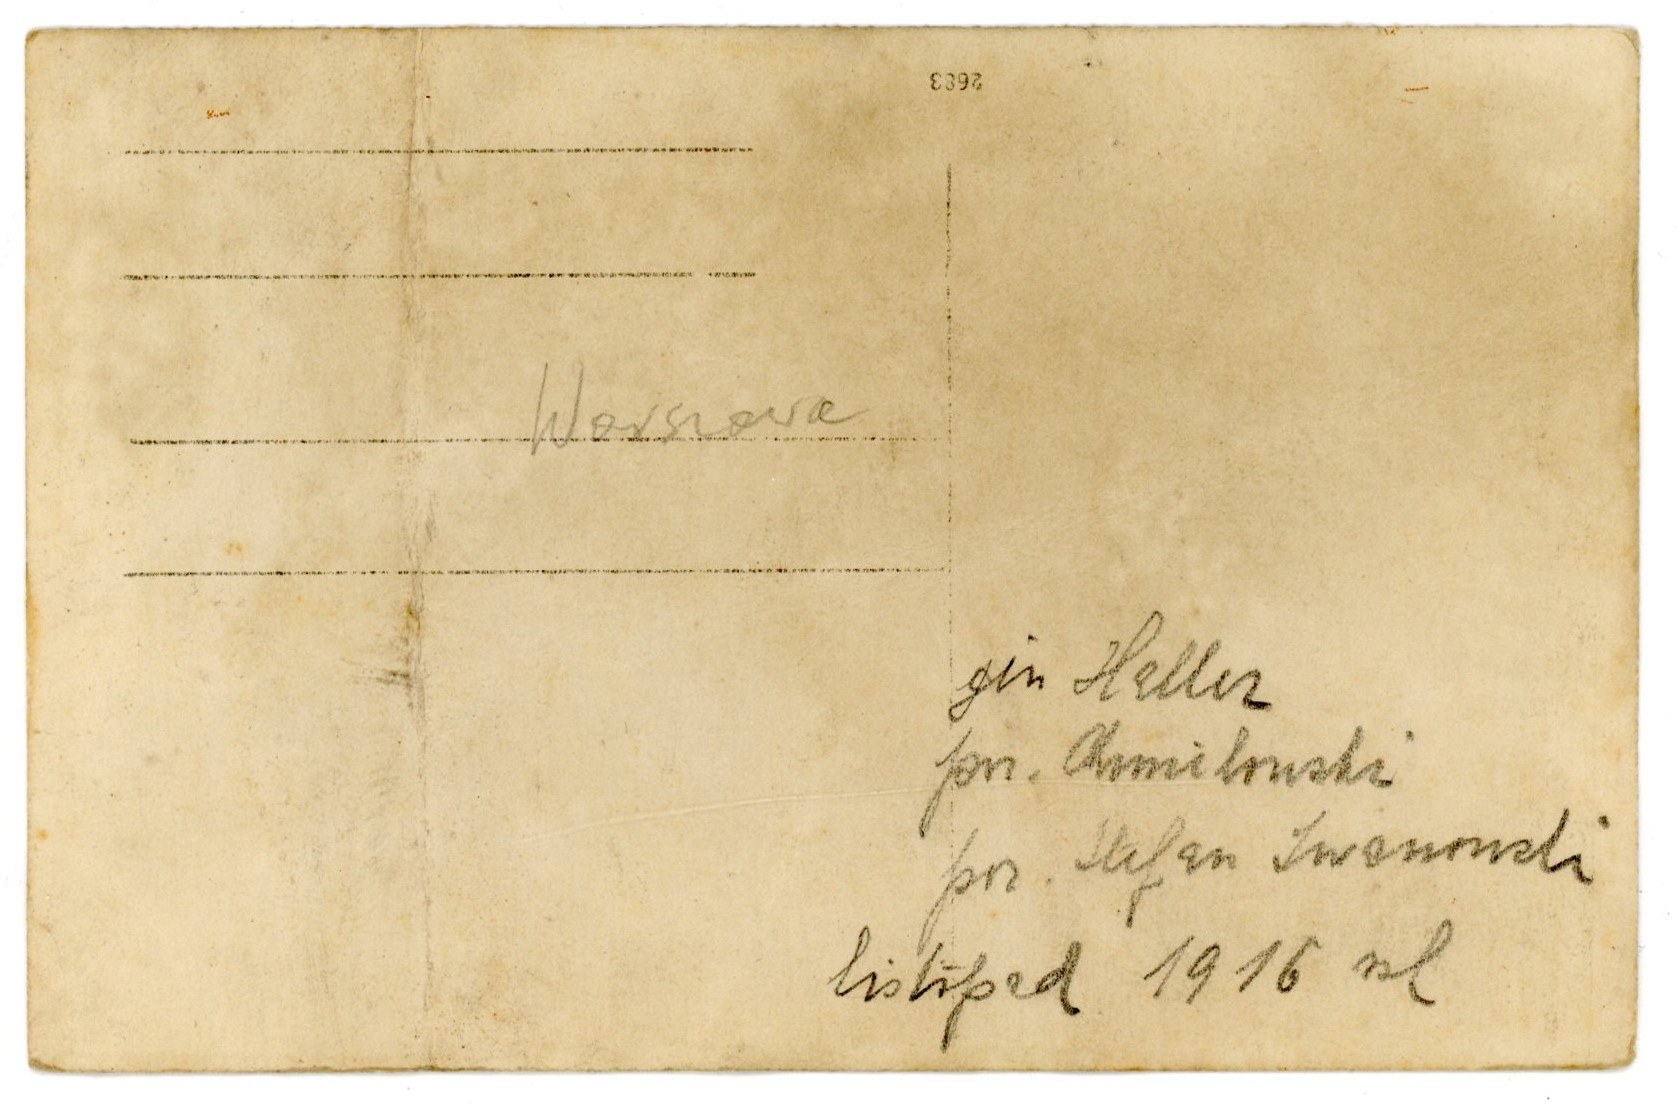 2683
Warszawa
gen Haller
por.
por. Stefan Iwanowski
listopad 1916